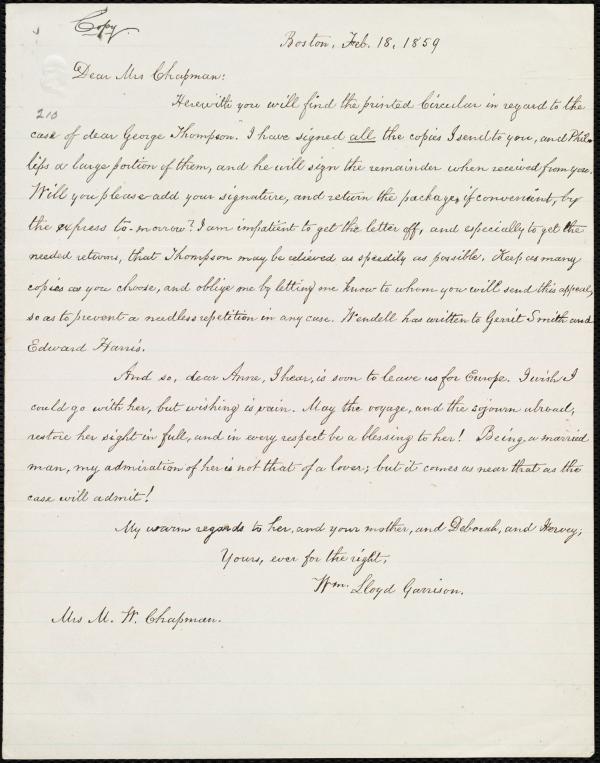 Copy.
Boston, Feb. 18, 1859
Dear Mrs Chapman:
Herewith you will find the printed Circular in regard to the
210
case of dear George Thompson. I have signed all the copies I send to you, and Phil-
lips a large portion of them, and he will sign the remainder when received from you.
Will you please add your signature, and return the package, if convenient, by
the express to-morrow? I am impatient to get the letter off, and especially to get the
needed returns, that Thompson may be relieved as speedily as possible. Keep as many
copies as you choose, and oblige me by letting me know to whom you will send this appeal,
so as to prevent a needless repetition in any case. Wendell has written to Gerrit Smith and
Edward Harris.
And so, dear Anne, I hear, is soon to leave us for Europe. I wish I
could go with her, but wishing is vain. May the voyage, and the sojourn abroad,
restore her sight in full, and in every respect be a blessing to her! Being a married
man, my admiration of her is not that of a lover; but it comes as near that as the
case will admit!
My warm regards to her, and your mother, and Deborah, and Hervey;
Yours, ever for the right,
Wm. Lloyd Garrison.
Mrs M. W. Chapman.